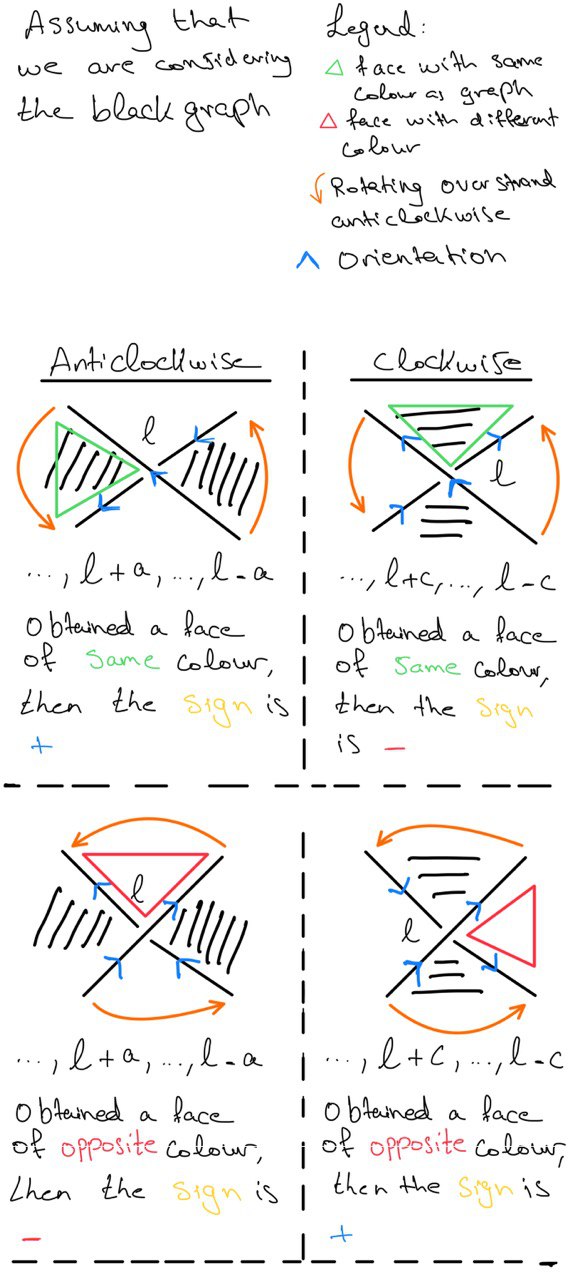 Assuming that
we are considering
the black graph
Legend:
△ face with same
colour as graph
△ face with different
colour
Rotating overstrand
anticlockwise
^ Orientation
Anticlockwise
l
..., l + a, ..., l - a
Obtained a face
of same colour,
then the sign is
+
Clockwise
l
..., l + c, ..., l - c
Obtained a face
of same colour,
then the sign
is -
l
..., l + a, ..., l - a
Obtained a face
of opposite colour,
then the sign is
-
l
..., l + c, ..., l - c
Obtained a face
of opposite colour,
then the sign is
+